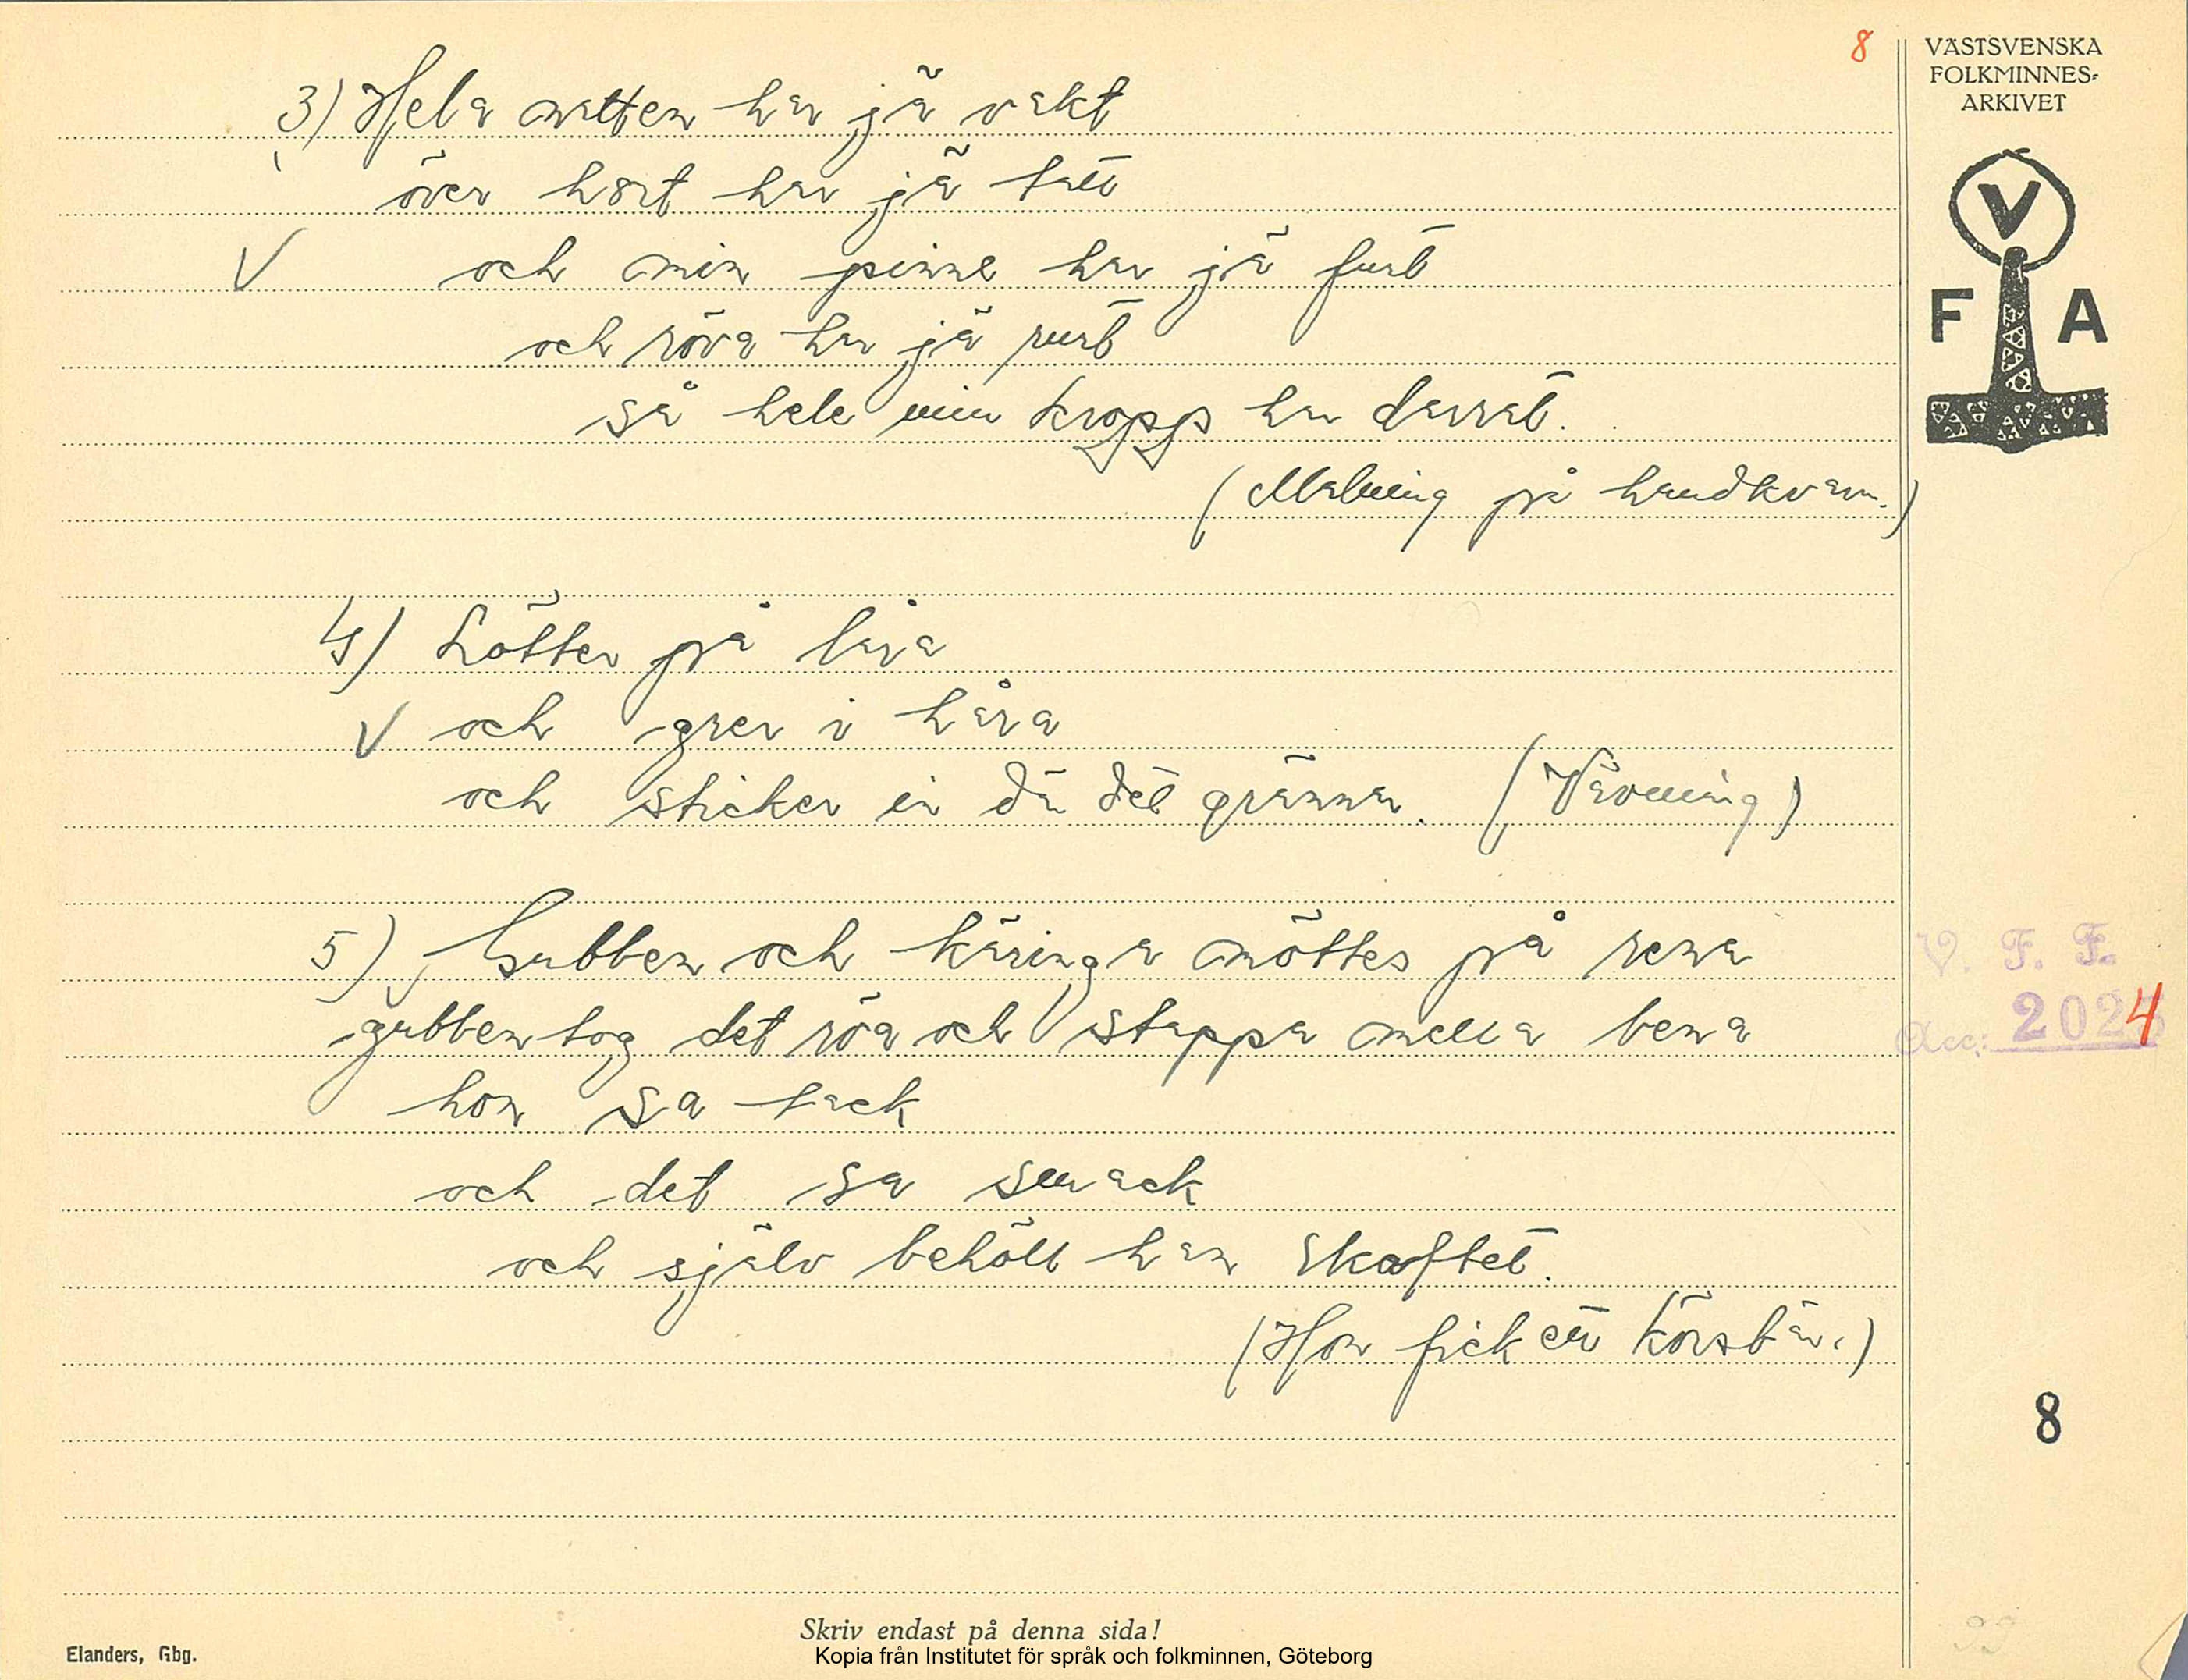 8
VÄSTSVENSKA
FOLKMINNES-
ARKIVET
V
F A
3) Hela natten har jä vakt
över hort har jä tatt
V och min pinne har jä
och röva har jä
så hele min kropp har darrat.
(Malning på handkvarn.)
4) Lötter på låra
V och grer i håra
och sticker in dä det gränna. (Vävning)
5) Gubben och käringa möttes på rena
gubben tog det röa och stappa mella bena
hon sa tack
och det sa smack
och själv behöll han skaftet.
(Hon fick ett körsbär.)
V. F. F.
Acc: 2024
8
Skriv endast på denna sida!
Elanders, Gbg.
Kopia från Institutet för språk och folkminnen, Göteborg